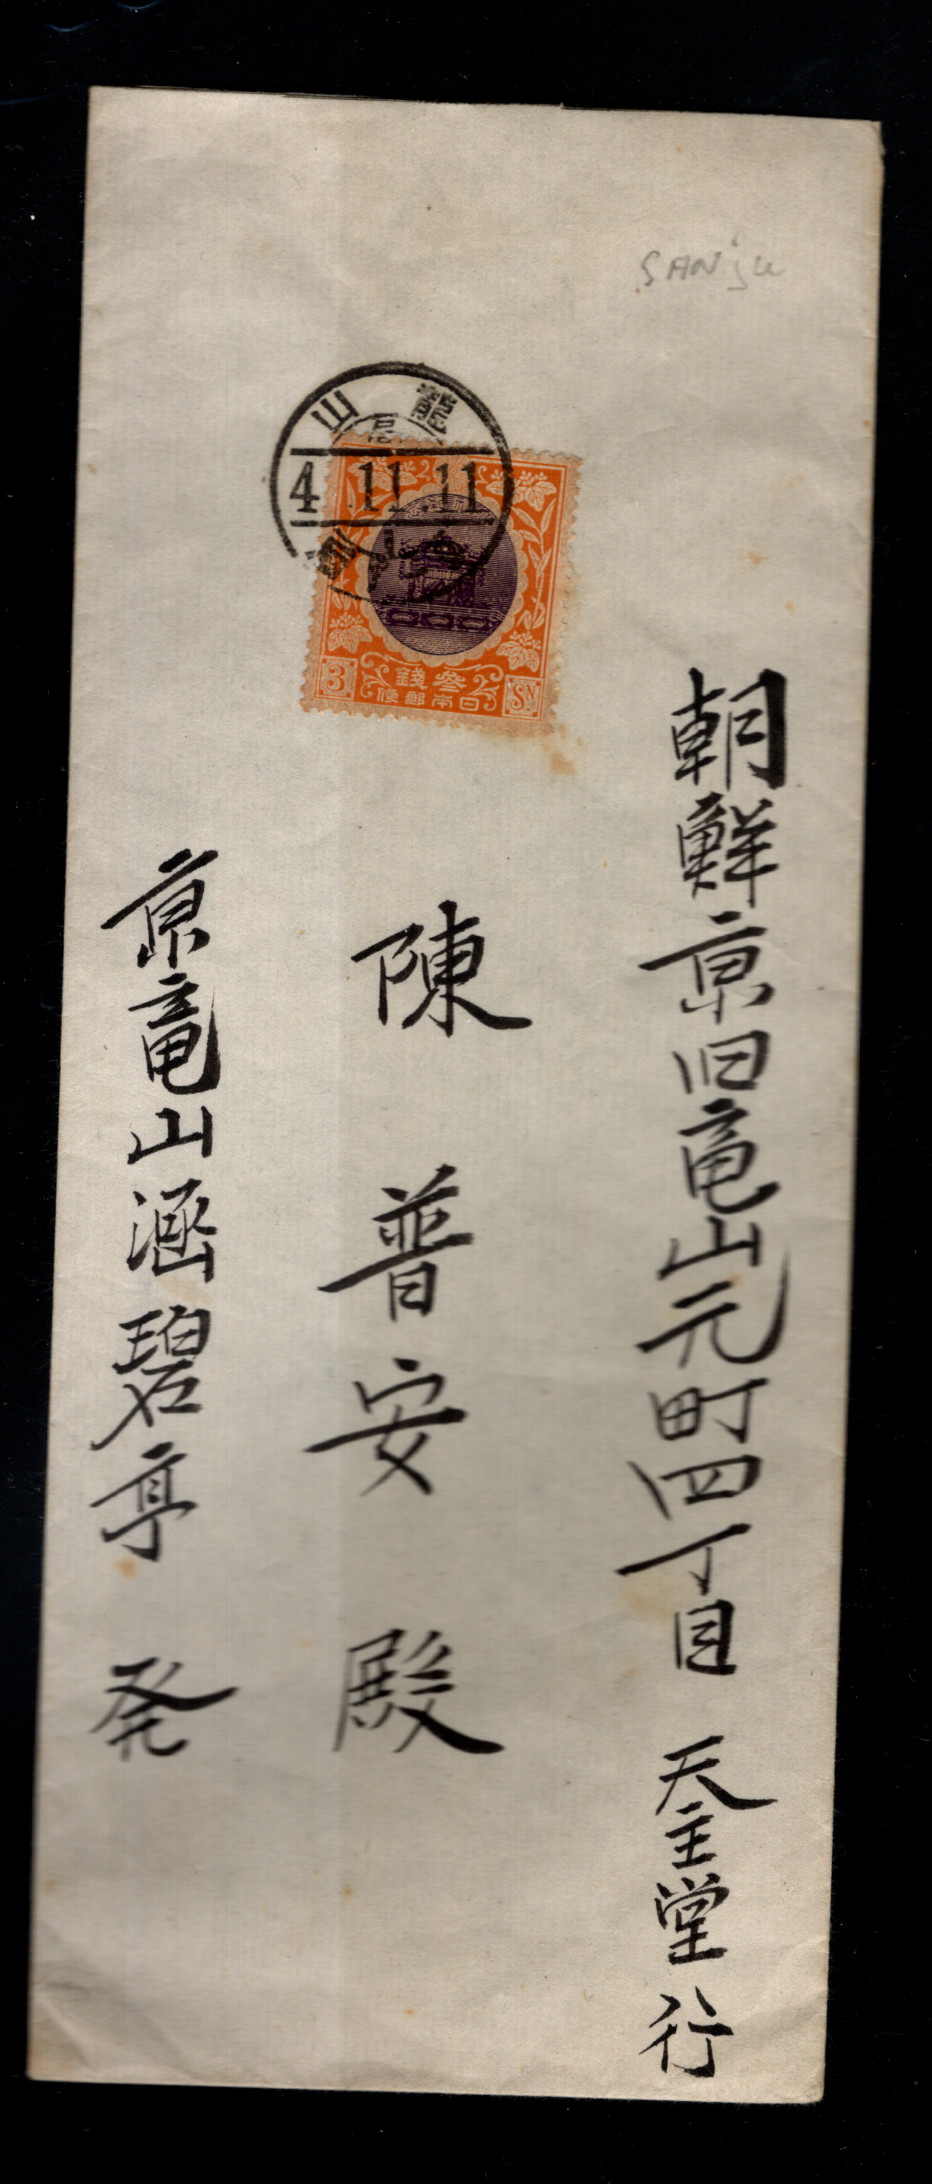 SANJU
龍山
4.11.11
3 SN
参銭
日本郵便
朝鮮京旧竜山元町四丁目 天主堂 行
陳普安殿
京竜山涵碧亭 発